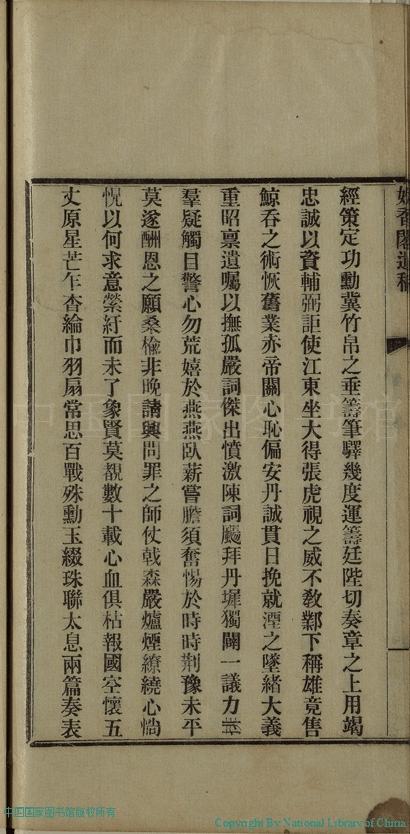 經策定功勳冀竹帛之垂籌筆驛幾度運籌廷陛切奏章之上用竭
忠誠以資輔弼詎使江東坐大得張虎視之威不敎鄴下稱雄竟售
鯨吞之術恢舊業赤帝關心恥偏安丹誠貫日挽就湮之墜緒大義
重昭禀遺囑以撫孤嚴詞傑出憤激陳詞颺拜丹墀獨闢一議力
羣疑觸目警心勿荒嬉於燕燕臥薪嘗膽須奮惕於時時荆豫未平
莫遂酬恩之願桑榆非晚請興問罪之師仗戟森嚴爐煙繚繞心惝
怳以何求意縈紆而未了象賢莫覩數十載心血俱枯報國空懷五
丈原星芒乍杳綸巾羽扇常思百戰殊勳玉綴珠聯太息兩篇奏表
中国国家图书馆版权所有
Copyright By National Library of China